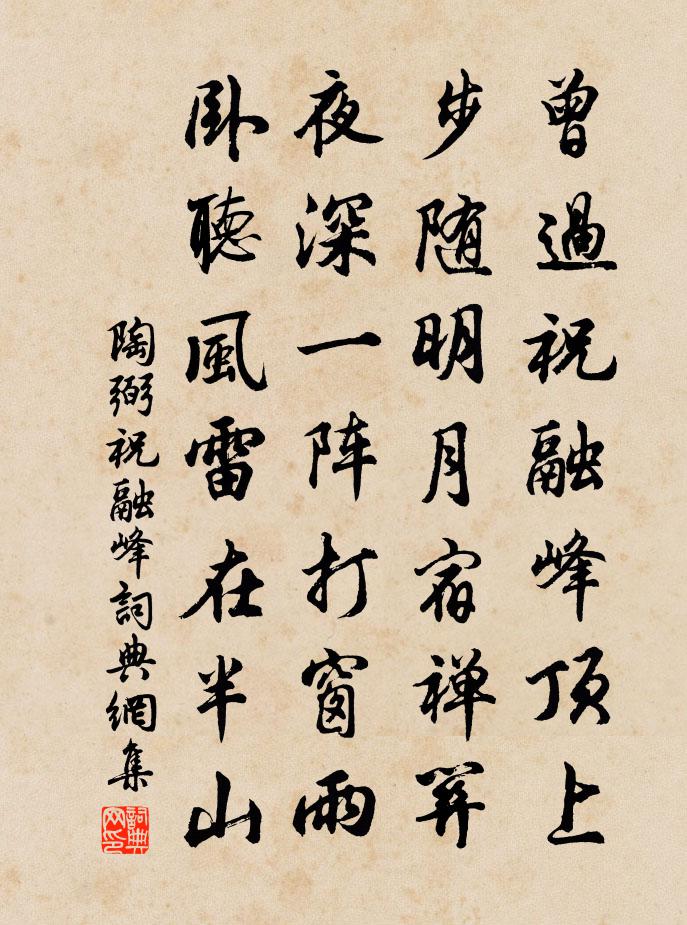 曾過祝融峰頂上
步隨明月宿禪關
夜深一陣打窗雨
臥聽風雷在半山
陶弼祝融峰詞典網集
詞典网印